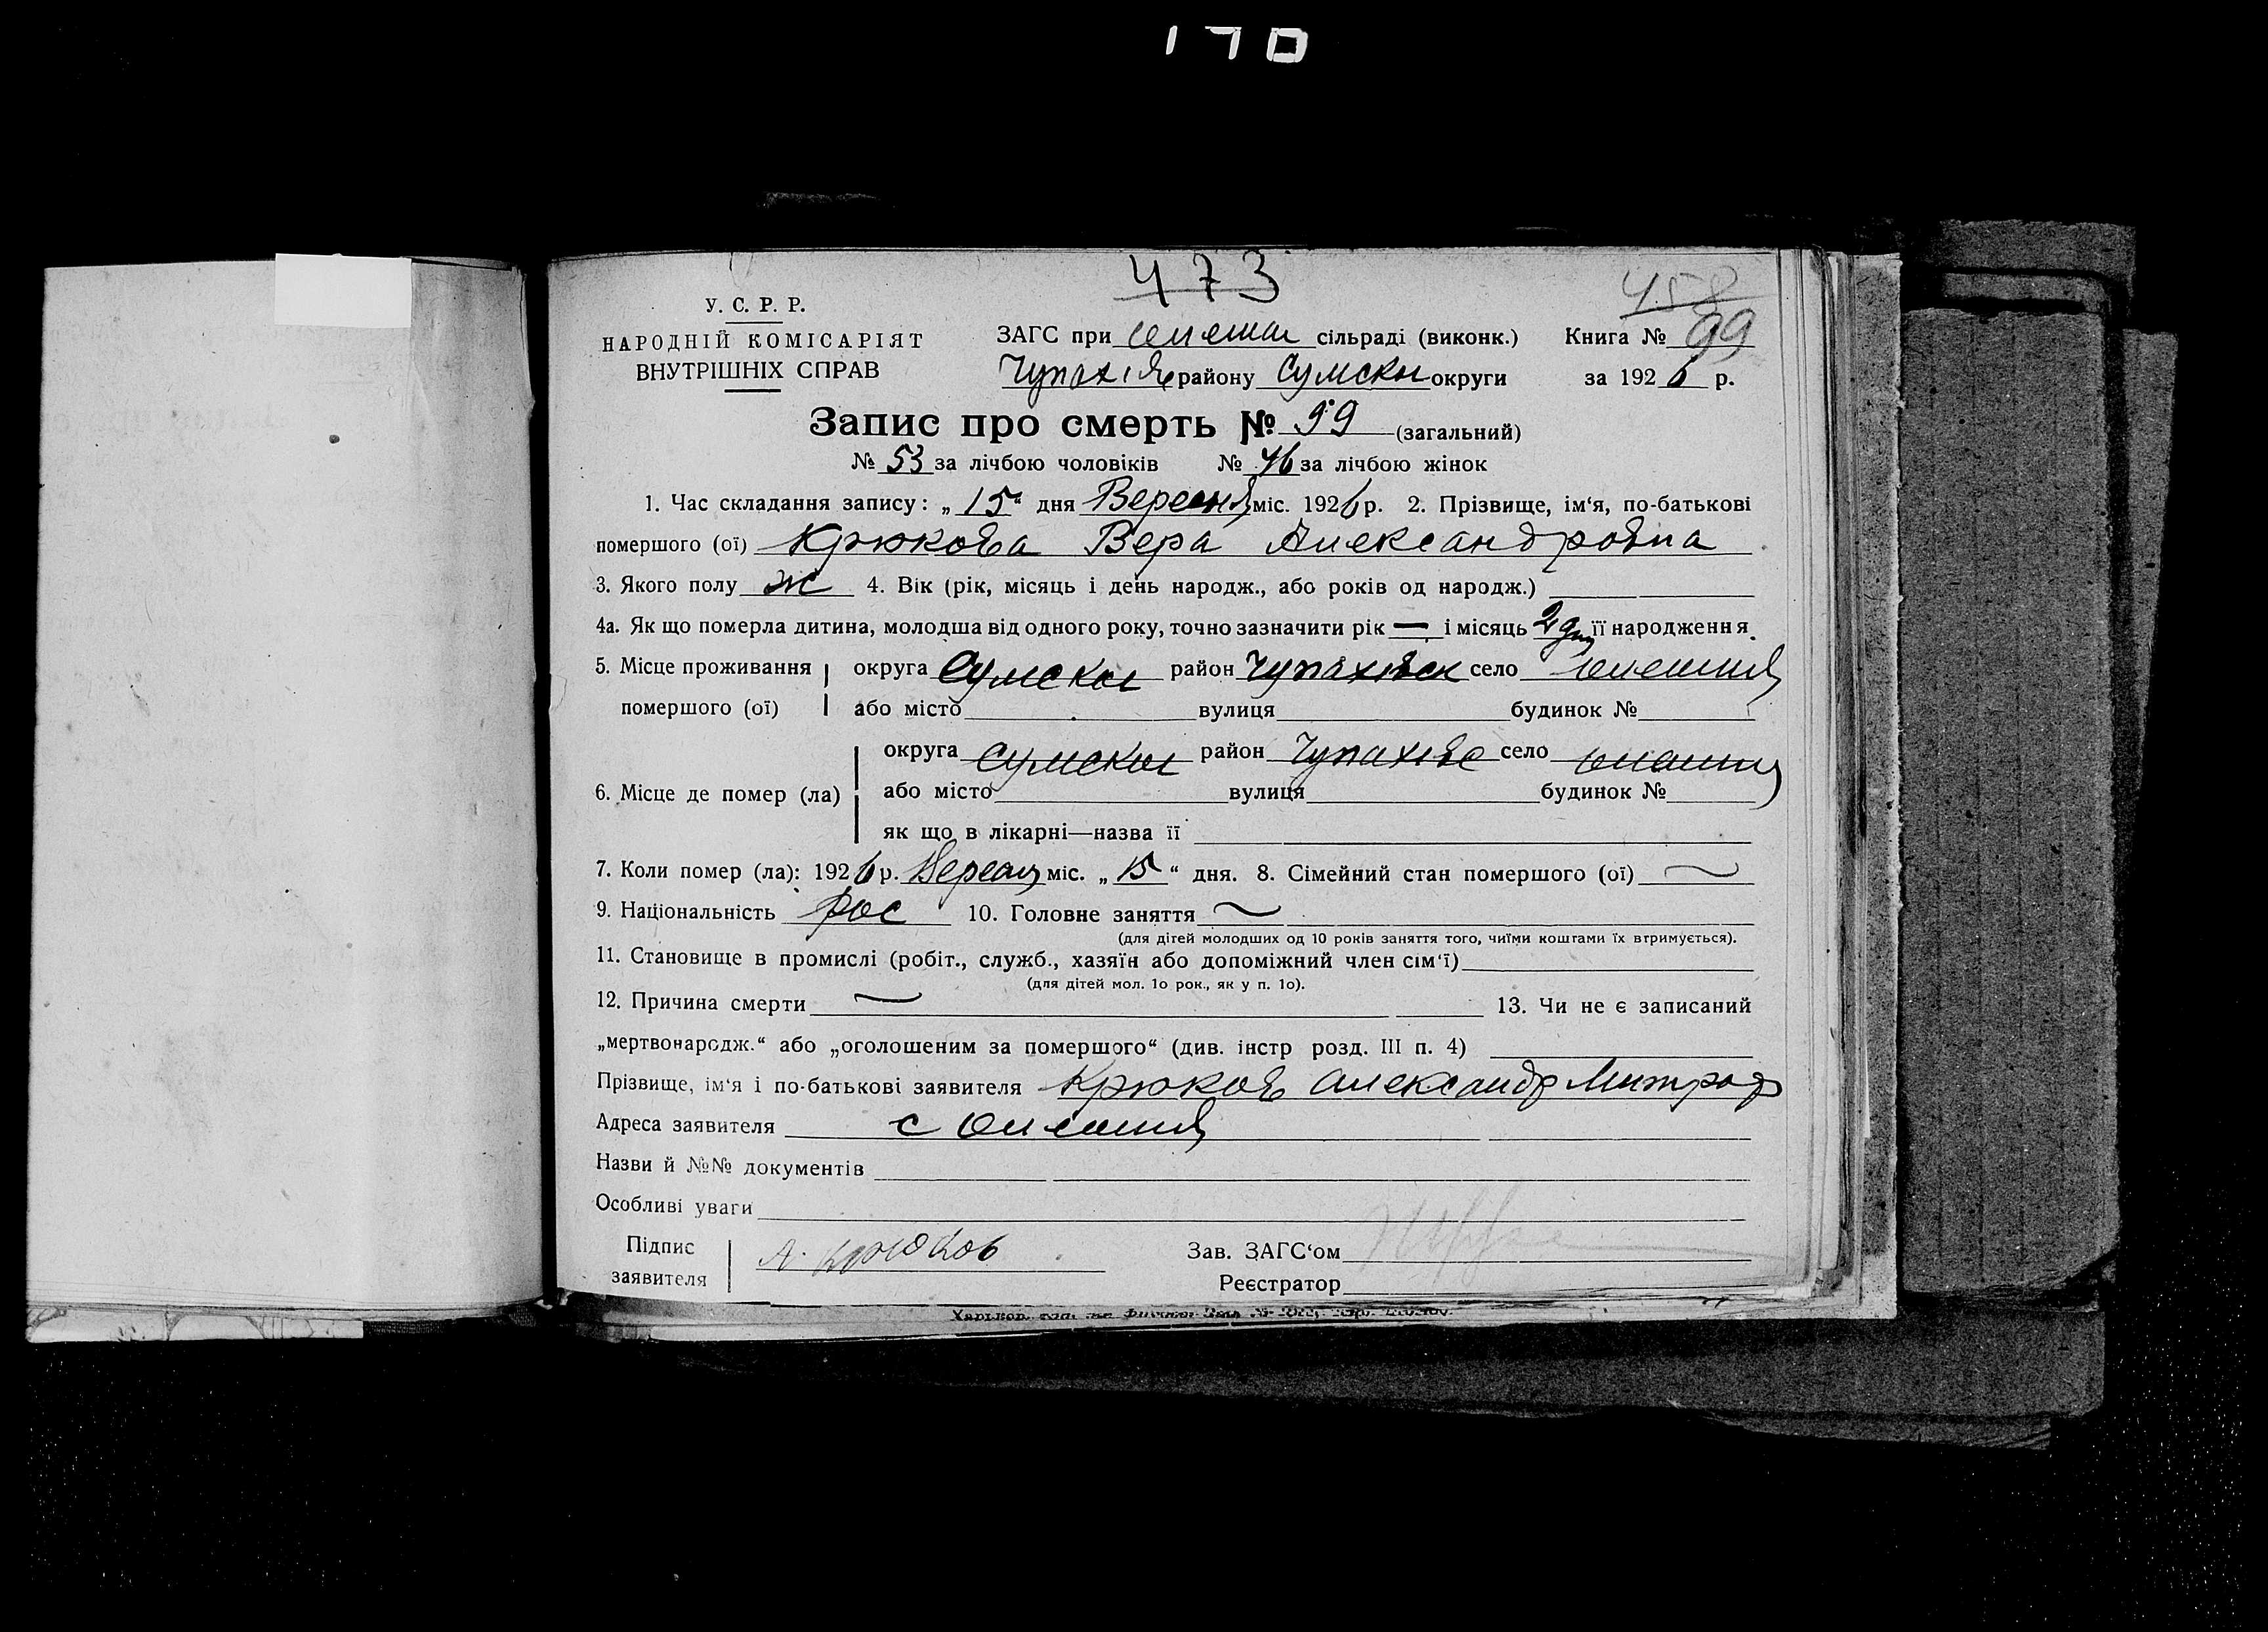 170
473
458
У. С. Р. Р.
НАРОДНІЙ КОМІСАРІЯТ
ВНУТРІШНІХ СПРАВ
ЗАГС при сільраді (виконк.) Книга № 99
району Сумскы округи за 1926 р.
Запис про смерть № 99 (загальний)
№ 53 за лічбою чоловіків № 46 за лічбою жінок
1. Час складання запису: „15“ дня Вересня міс. 1926 р. 2. Прізвище, ім‘я, по-батькові
помершого (ої) Крюкова Вера Александровна
3. Якого полу ж 4. Вік (рік, місяць і день народж., або років од народж.)
4а. Як що померла дитина, молодша від одного року, точно зазначити рік — і місяць 2 дня її народження.
5. Місце проживання округа Сумскы район Чупахівск село
помершого (ої) або місто вулиця будинок №
округа Сумскы район Чупахівс село
6. Місце де помер (ла) або місто вулиця будинок №
як що в лікарні—назва її
7. Коли помер (ла): 1926 р. Вересня міс. „15“ дня. 8. Сімейний стан помершого (ої)
9. Національність рос 10. Головне заняття
(для дітей молодших од 10 років заняття того, чиїми коштами їх втримується).
11. Становище в промислі (робіт., служб., хазяїн або допоміжний член сім‘ї)
(для дітей мол. 1о рок., як у п. 1о).
12. Причина смерти 13. Чи не є записаний
„мертвонародж.“ або „оголошеним за помершого“ (див. інстр розд. III п. 4)
Прізвище, ім‘я і по-батькові заявителя Крюков Александр
Адреса заявителя с
Назви й №№ документів
Особливі уваги
Підпис
заявителя А. Крюков
Зав. ЗАГС‘ом
Реєстратор